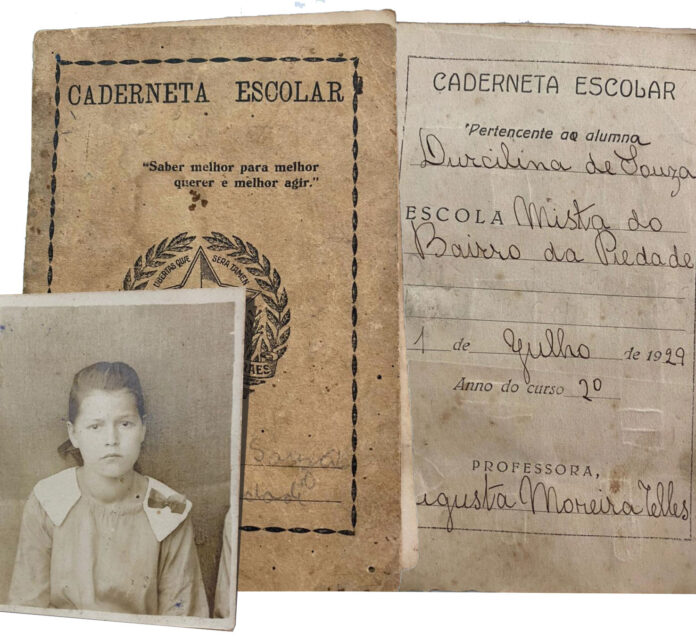 CADERNETA ESCOLAR
"Saber melhor para melhor
querer e melhor agir."
LIBERTAS QUE SERA TAMEN
CADERNETA ESCOLAR
Pertencente ao alumna
Durcilina de Souza
ESCOLA Mista do
Bairro da Piedade
1 de Julho de 1929
Anno do curso 2º
PROFESSORA,
Augusta Moreira Telles